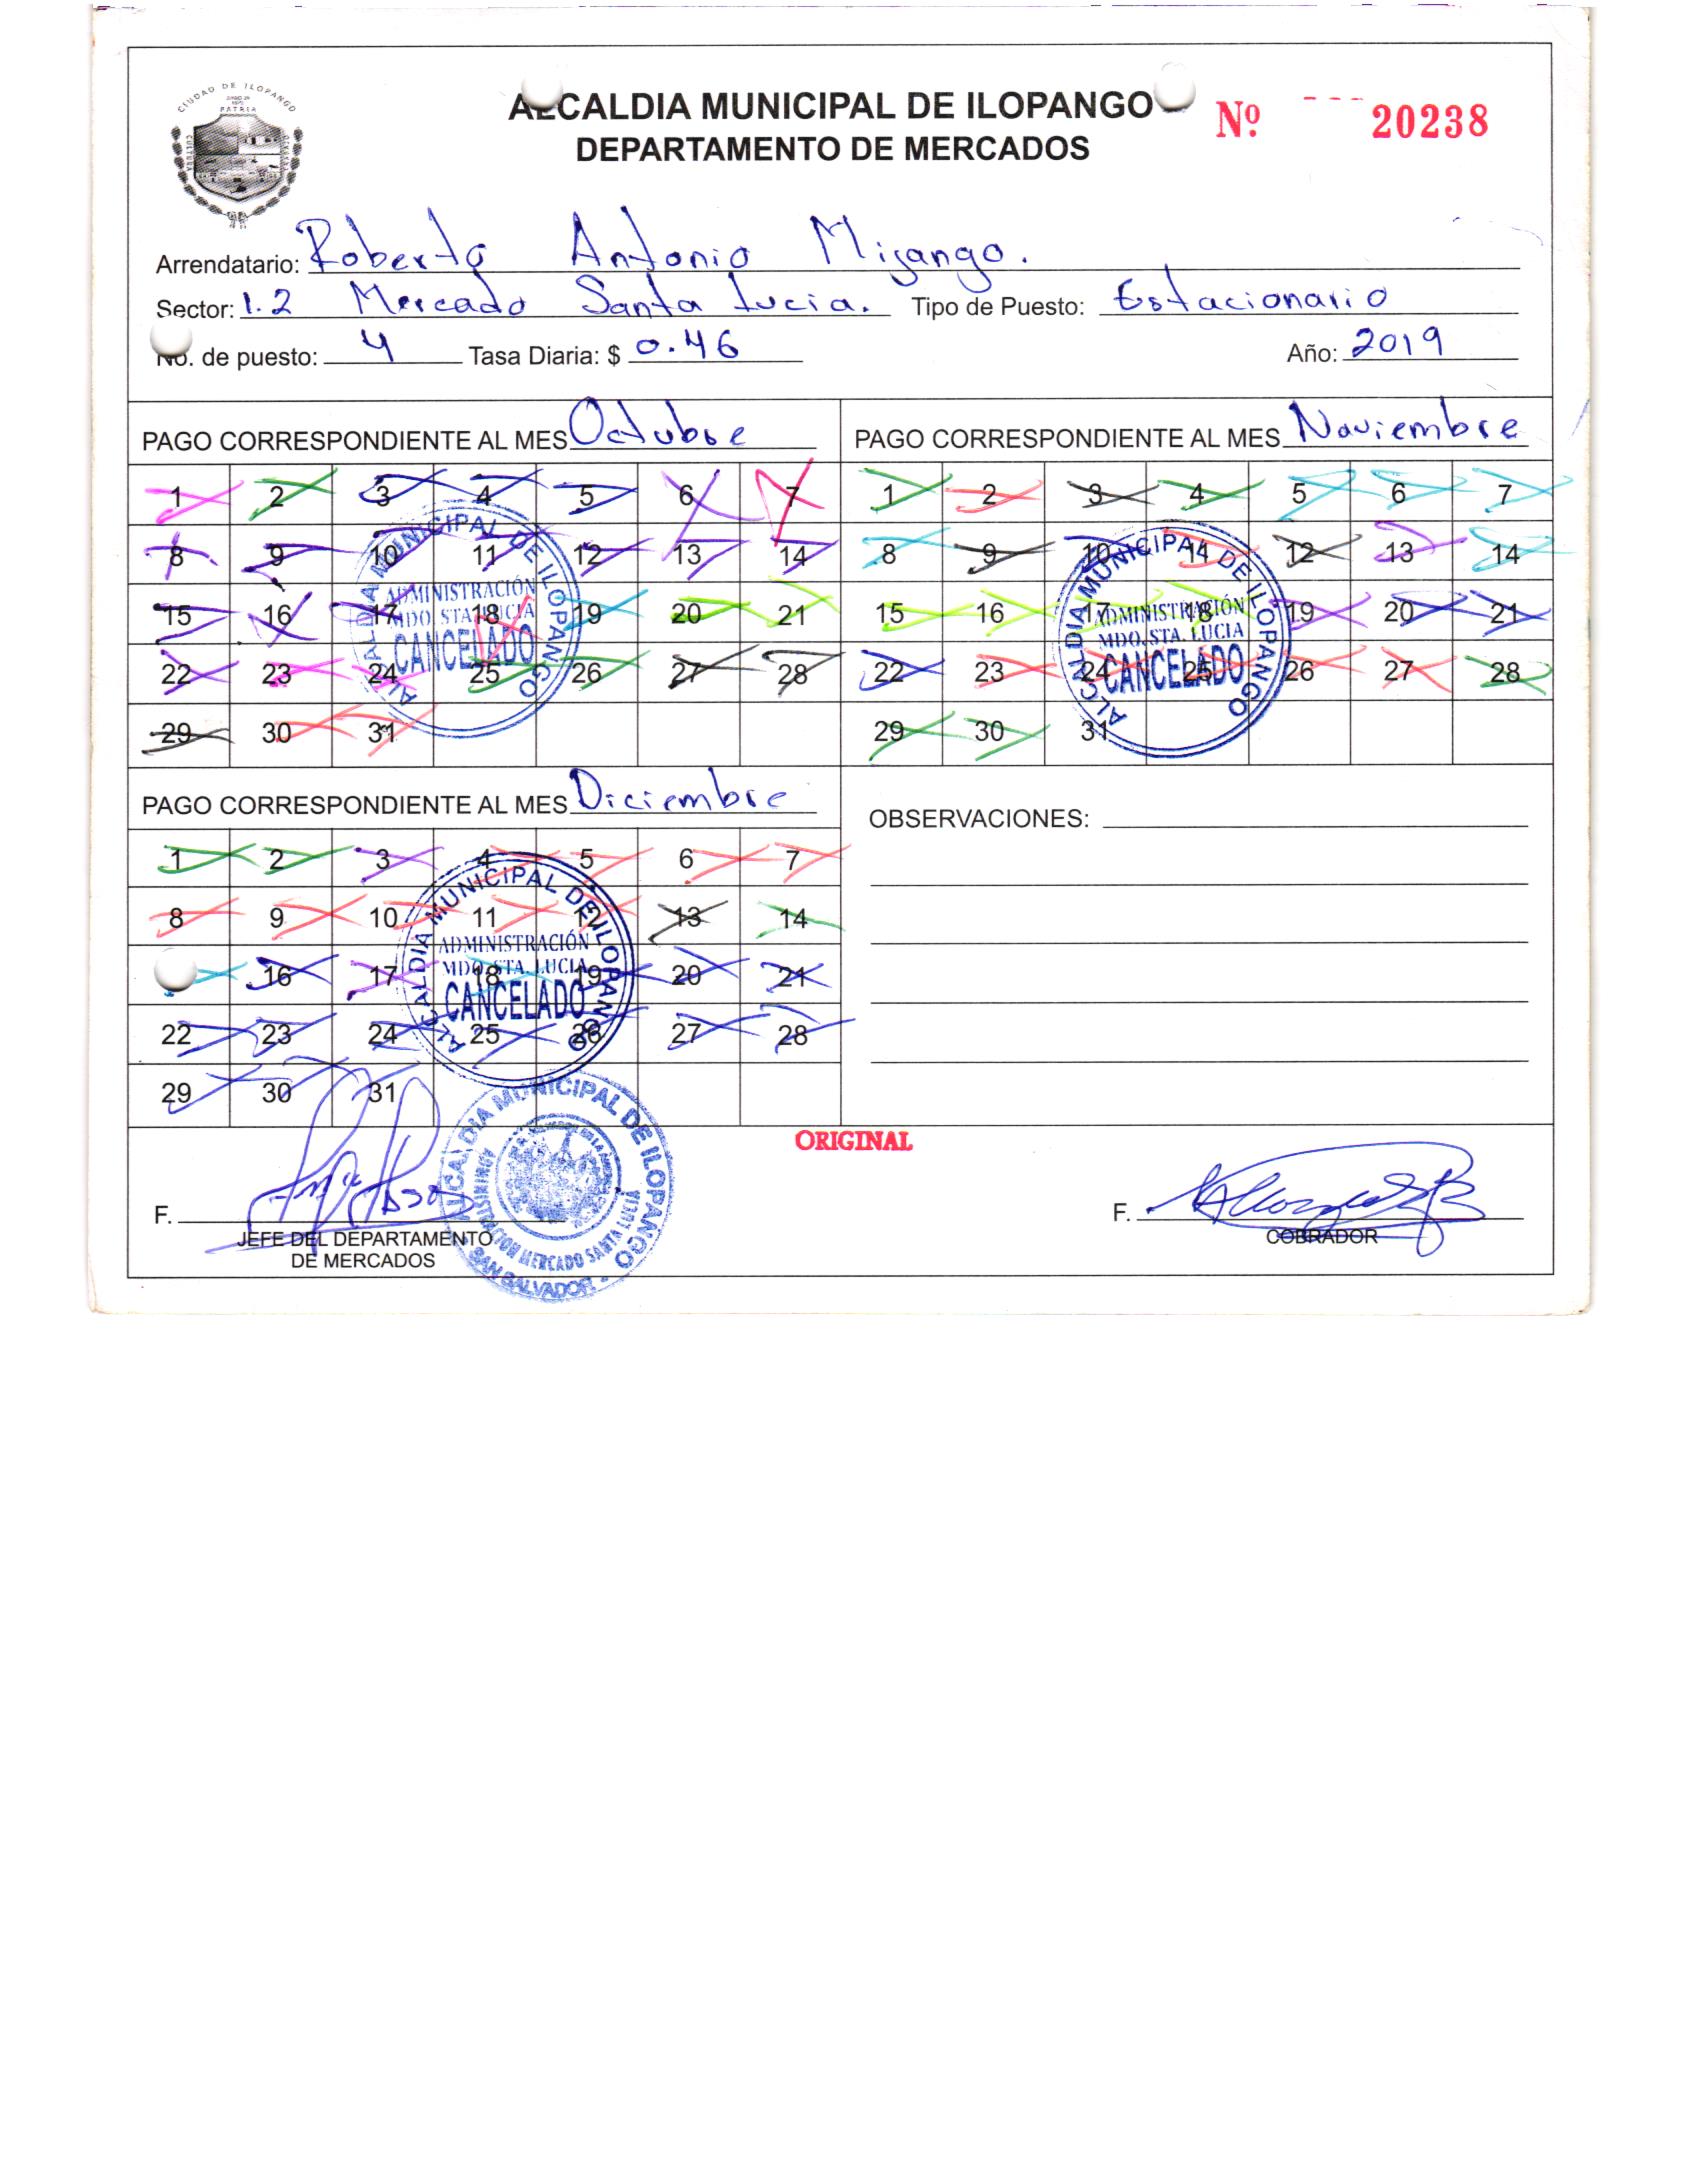 CIUDAD DE ILOPANGO
PATRIA
CULTURA
ALCALDIA MUNICIPAL DE ILOPANGO
DEPARTAMENTO DE MERCADOS
Nº 20238
Arrendatario: Roberto Antonio Mijango.
Sector: 1.2 Mercado Santa Lucia. Tipo de Puesto: Estacionario
No. de puesto: 4 Tasa Diaria: $ 0.46 Año: 2019
PAGO CORRESPONDIENTE AL MES Octubre
1 2 3 4 5 6 7
8 9 10 11 12 13 14
15 16 17 18 19 20 21
22 23 24 25 26 27 28
29 30 31
ALCALDIA MUNICIPAL DE ILOPANGO
ADMINISTRACIÓN
MDO. STA. LUCIA
CANCELADO
PAGO CORRESPONDIENTE AL MES Noviembre
1 2 3 4 5 6 7
8 9 10 11 12 13 14
15 16 17 18 19 20 21
22 23 24 25 26 27 28
29 30 31
ALCALDIA MUNICIPAL DE ILOPANGO
ADMINISTRACIÓN
MDO. STA. LUCIA
CANCELADO
PAGO CORRESPONDIENTE AL MES Diciembre
1 2 3 4 5 6 7
8 9 10 11 12 13 14
16 17 18 19 20 21
22 23 24 25 26 27 28
29 30 31
ALCALDIA MUNICIPAL DE ILOPANGO
ADMINISTRACIÓN
MDO. STA. LUCIA
CANCELADO
OBSERVACIONES:
ORIGINAL
F.
JEFE DEL DEPARTAMENTO
DE MERCADOS
ALCALDIA MUNICIPAL DE ILOPANGO
ADMINISTRACION MERCADO SANTA LUCIA
SAN SALVADOR
F.
COBRADOR